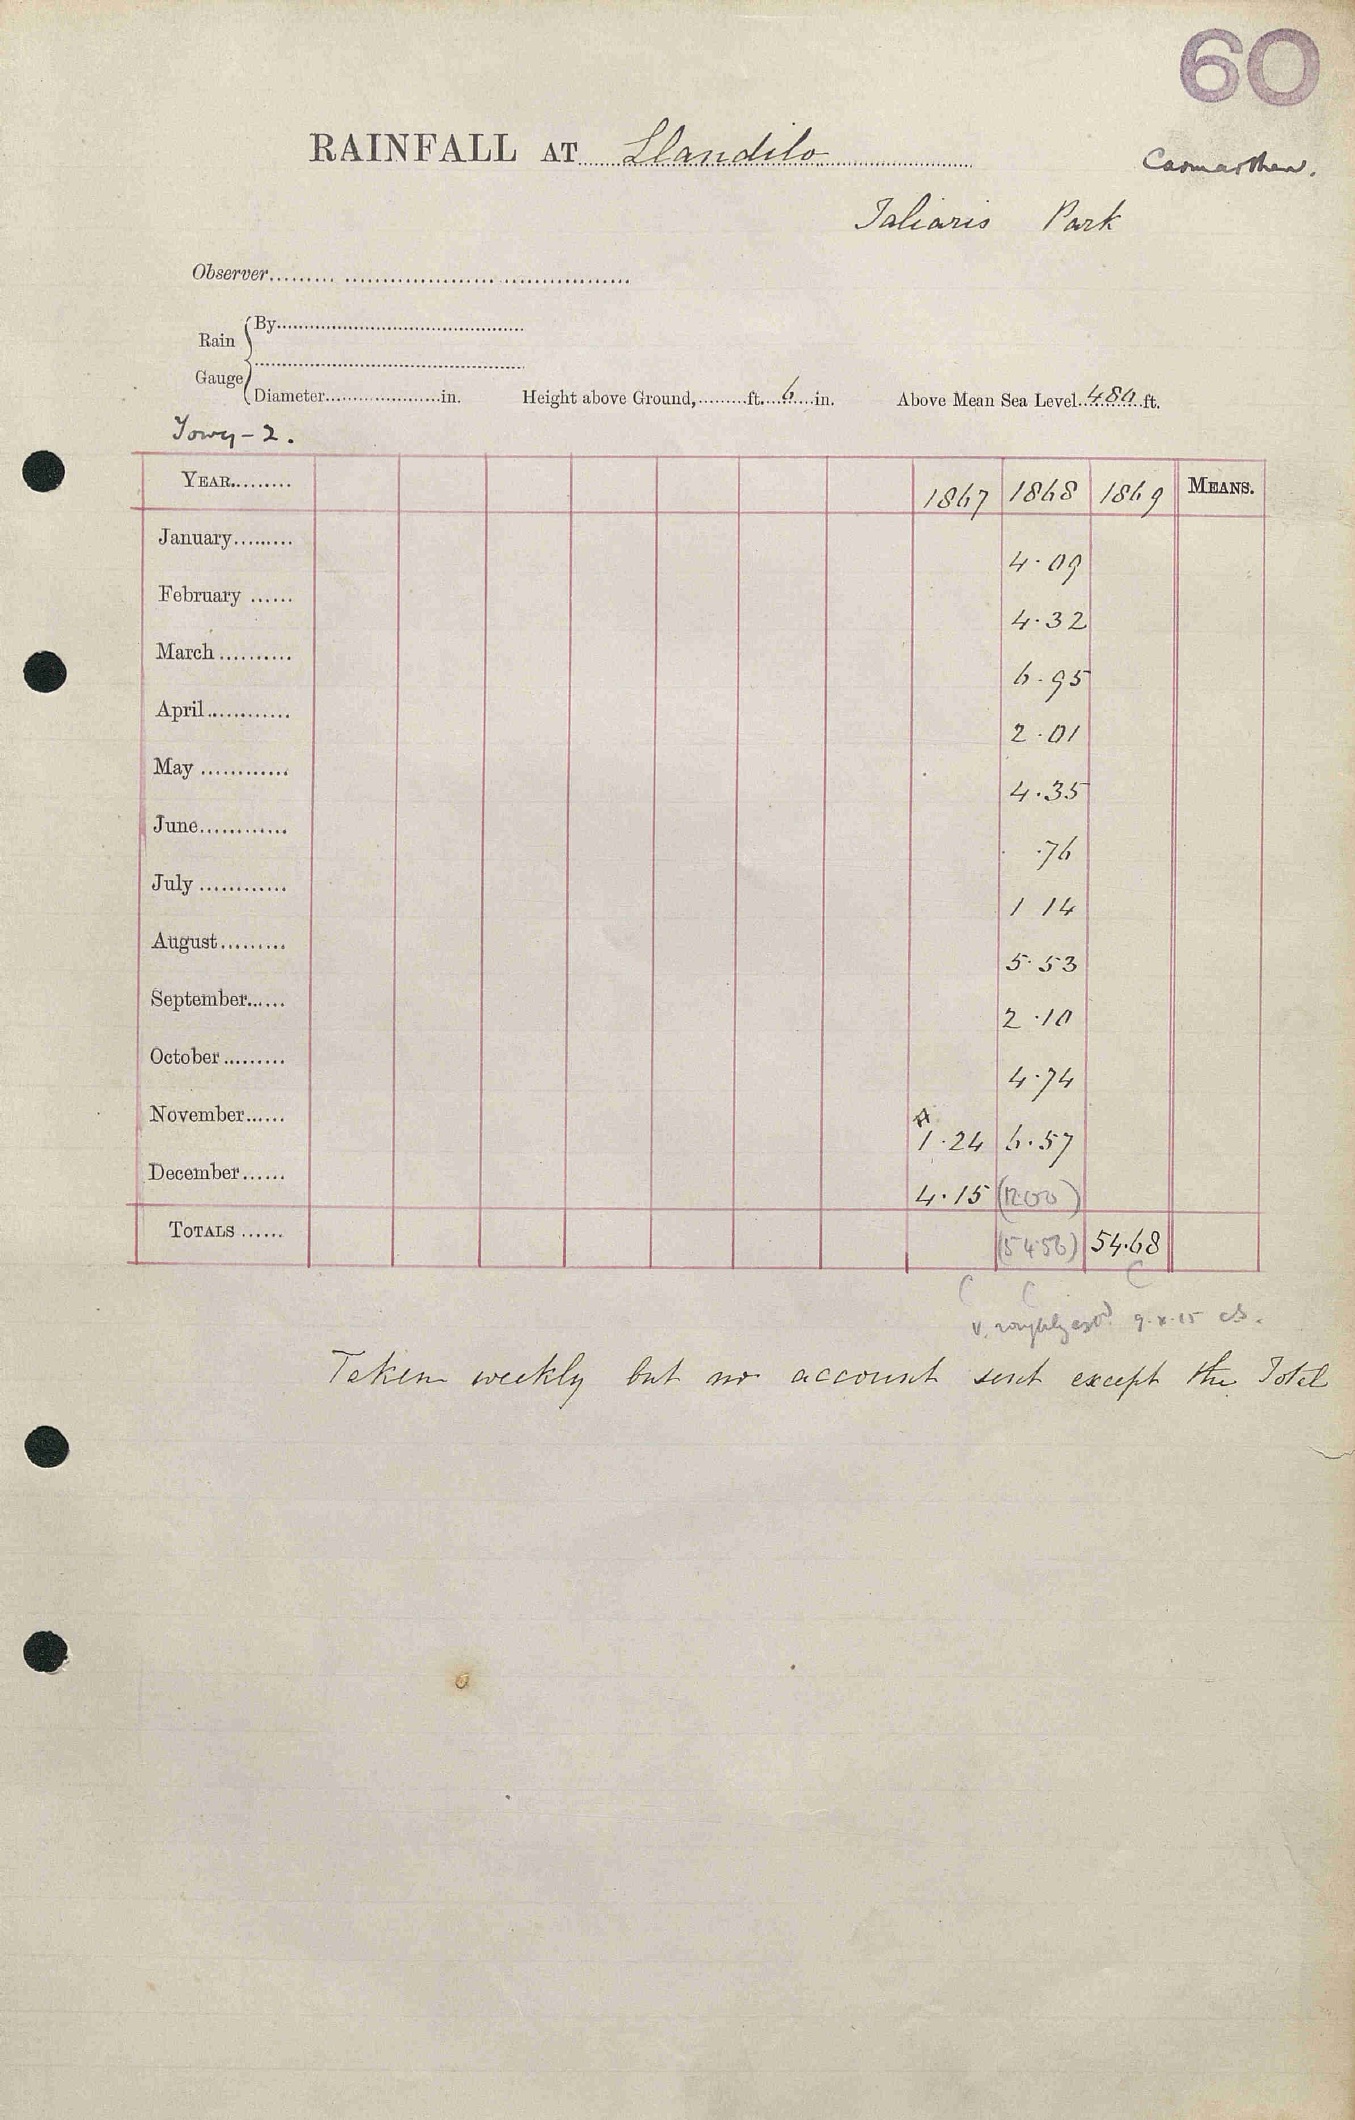 60
RAINFALL AT Llandilo
Carmarthen.
Taliaris Park
Observer
Rain Gauge { By
Diameter in. Height above Ground, ft. 6 in. Above Mean Sea Level 480 ft.
Towy - 2.
YEAR 1867 1868 1869 MEANS.
January 4.09
February 4.32
March 6.95
April 2.01
May 4.35
June .76
July 1 14
August 5.53
September 2.10
October 4.74
November 1.24 6.57
December 4.15 (12.00)
TOTALS (54.56) 54.68
v. roughly estd. 9.x.15
Taken weekly but no account sent except the Total